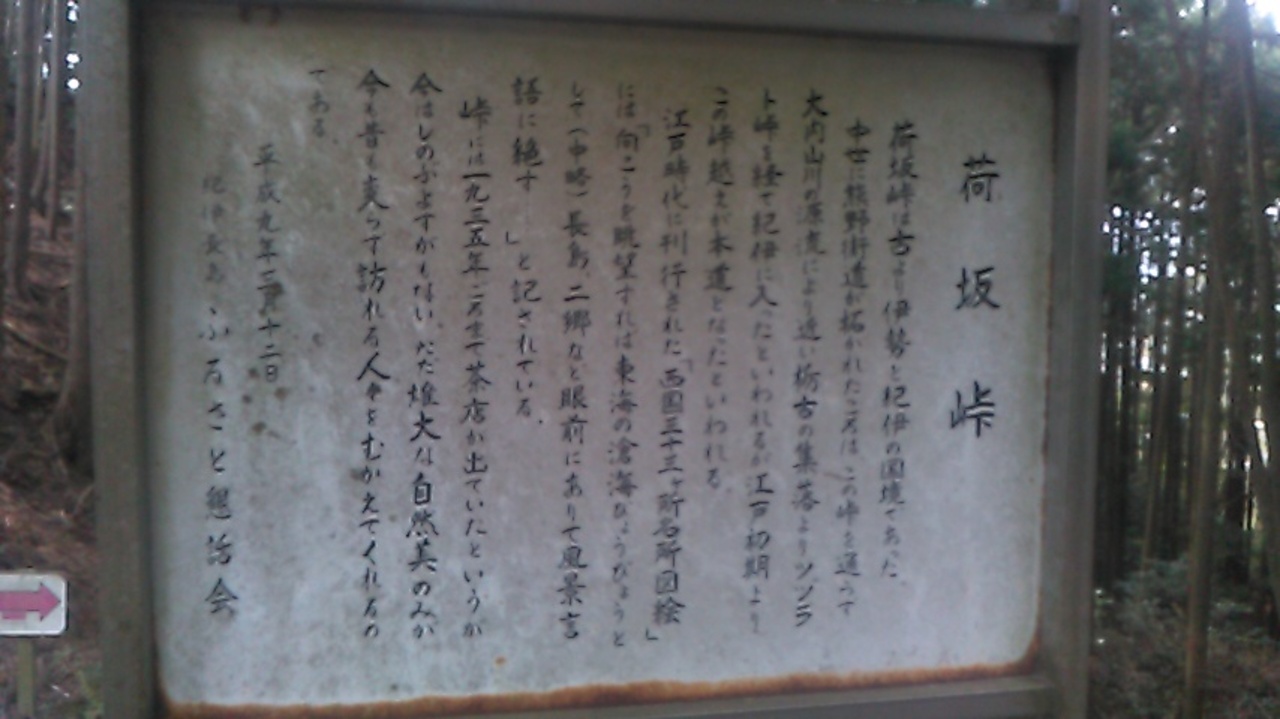 荷坂峠
荷坂峠は古より伊勢と紀伊の国境であった。
中世に熊野街道が拓かれたころは この峠を通って
大内山川の源流により近い栃古の集落よりツヅラ
ト峠を経て紀伊に入ったといわれるが江戸初期より
この峠越えが本道となったといわれる。
江戸時代に刊行された「西国三十三ヶ所名所図絵」
には「向こうを眺望すれば東海の滄海びょうびょうと
して(中略)長島、二郷など眼前にありて風景言
語に絶す」と記されている。
峠には一九三五年ごろまで茶店が出ていたというが
今はしのぶよすがもない。ただ雄大な自然美のみが
今も昔も変って訪れる人々をむかえてくれるの
である。
平成九年三月十二日
紀伊長島ふるさと懇話会